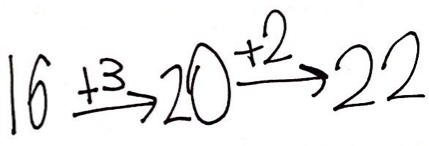 16 +3→ 20 +2→ 22